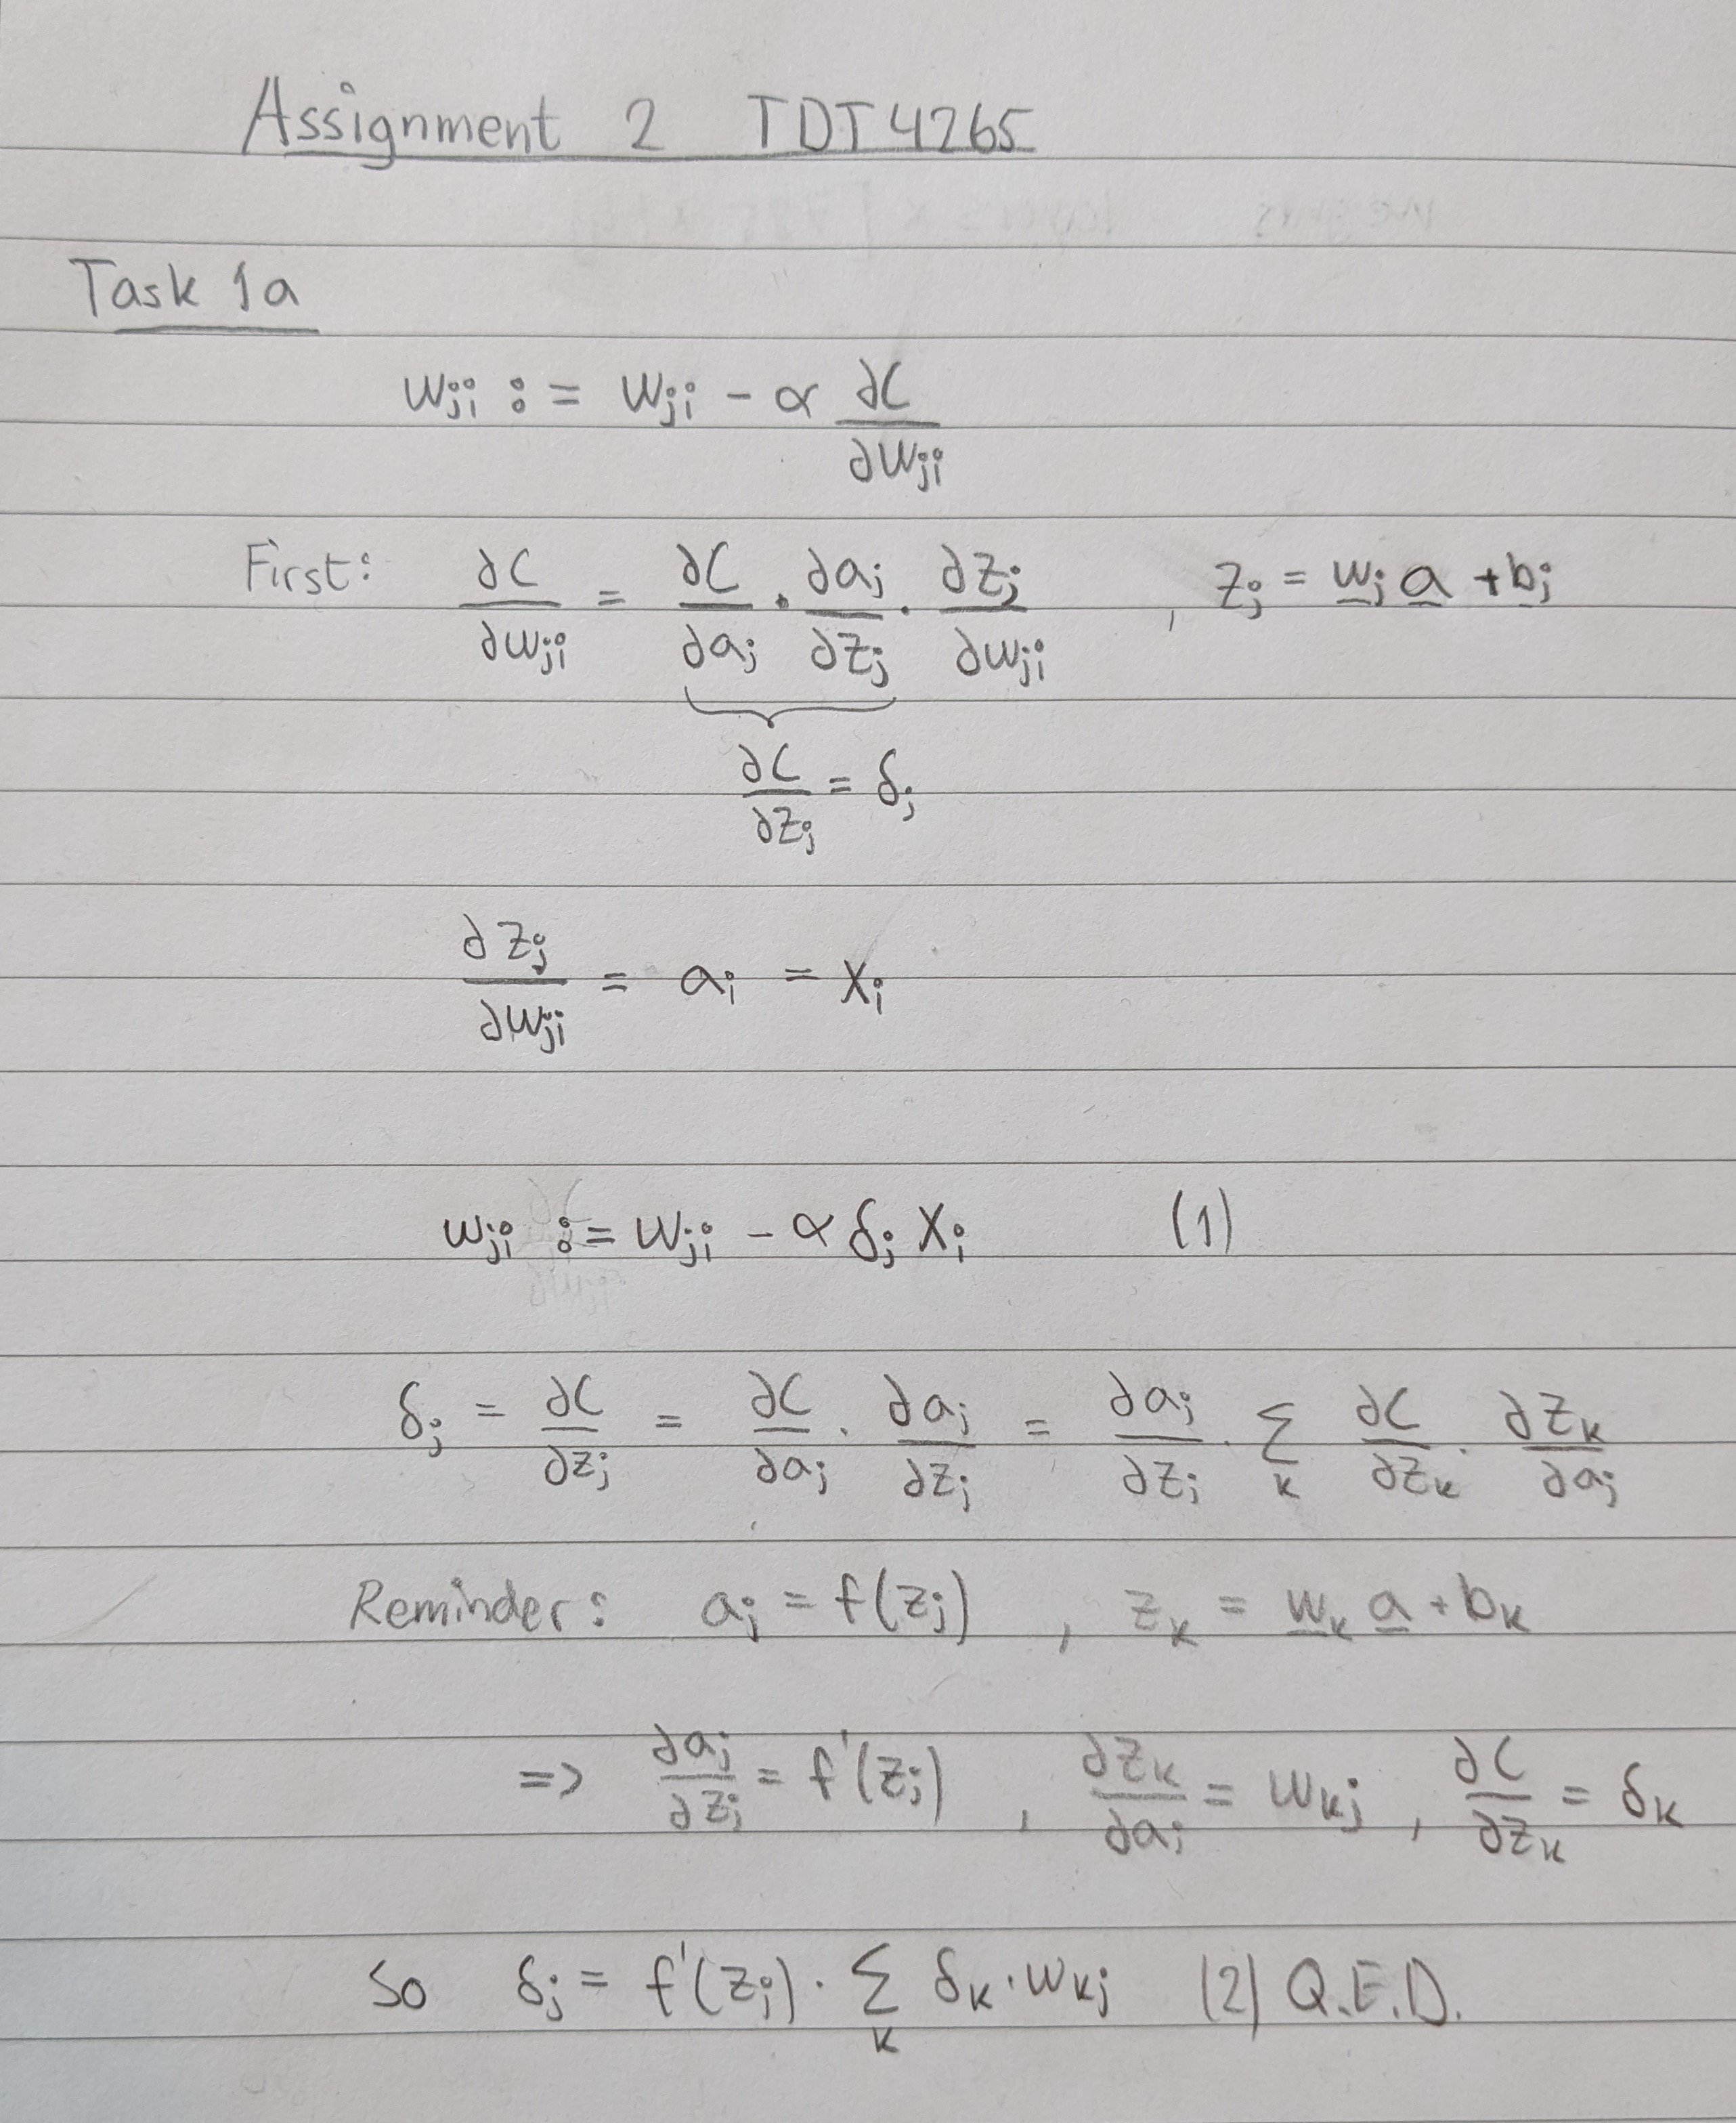 Assignment 2 TDT4265
Task 1a
w_ji := w_ji - α ∂C/∂w_ji
First: ∂C/∂w_ji = ∂C/∂a_j · ∂a_j/∂z_j · ∂z_j/∂w_ji , z_j = w_j a + b_j
∂C/∂z_j = δ_j
∂z_j/∂w_ji = a_i = x_i
w_ji := w_ji - α δ_j x_i (1)
δ_j = ∂C/∂z_j = ∂C/∂a_j · ∂a_j/∂z_j = ∂a_j/∂z_j · Σ_k ∂C/∂z_k · ∂z_k/∂a_j
Reminder: a_j = f(z_j) , z_k = w_k a + b_k
=> ∂a_j/∂z_j = f'(z_j) , ∂z_k/∂a_j = w_kj , ∂C/∂z_k = δ_k
So δ_j = f'(z_j) · Σ_k δ_k · w_kj (2) Q.E.D.